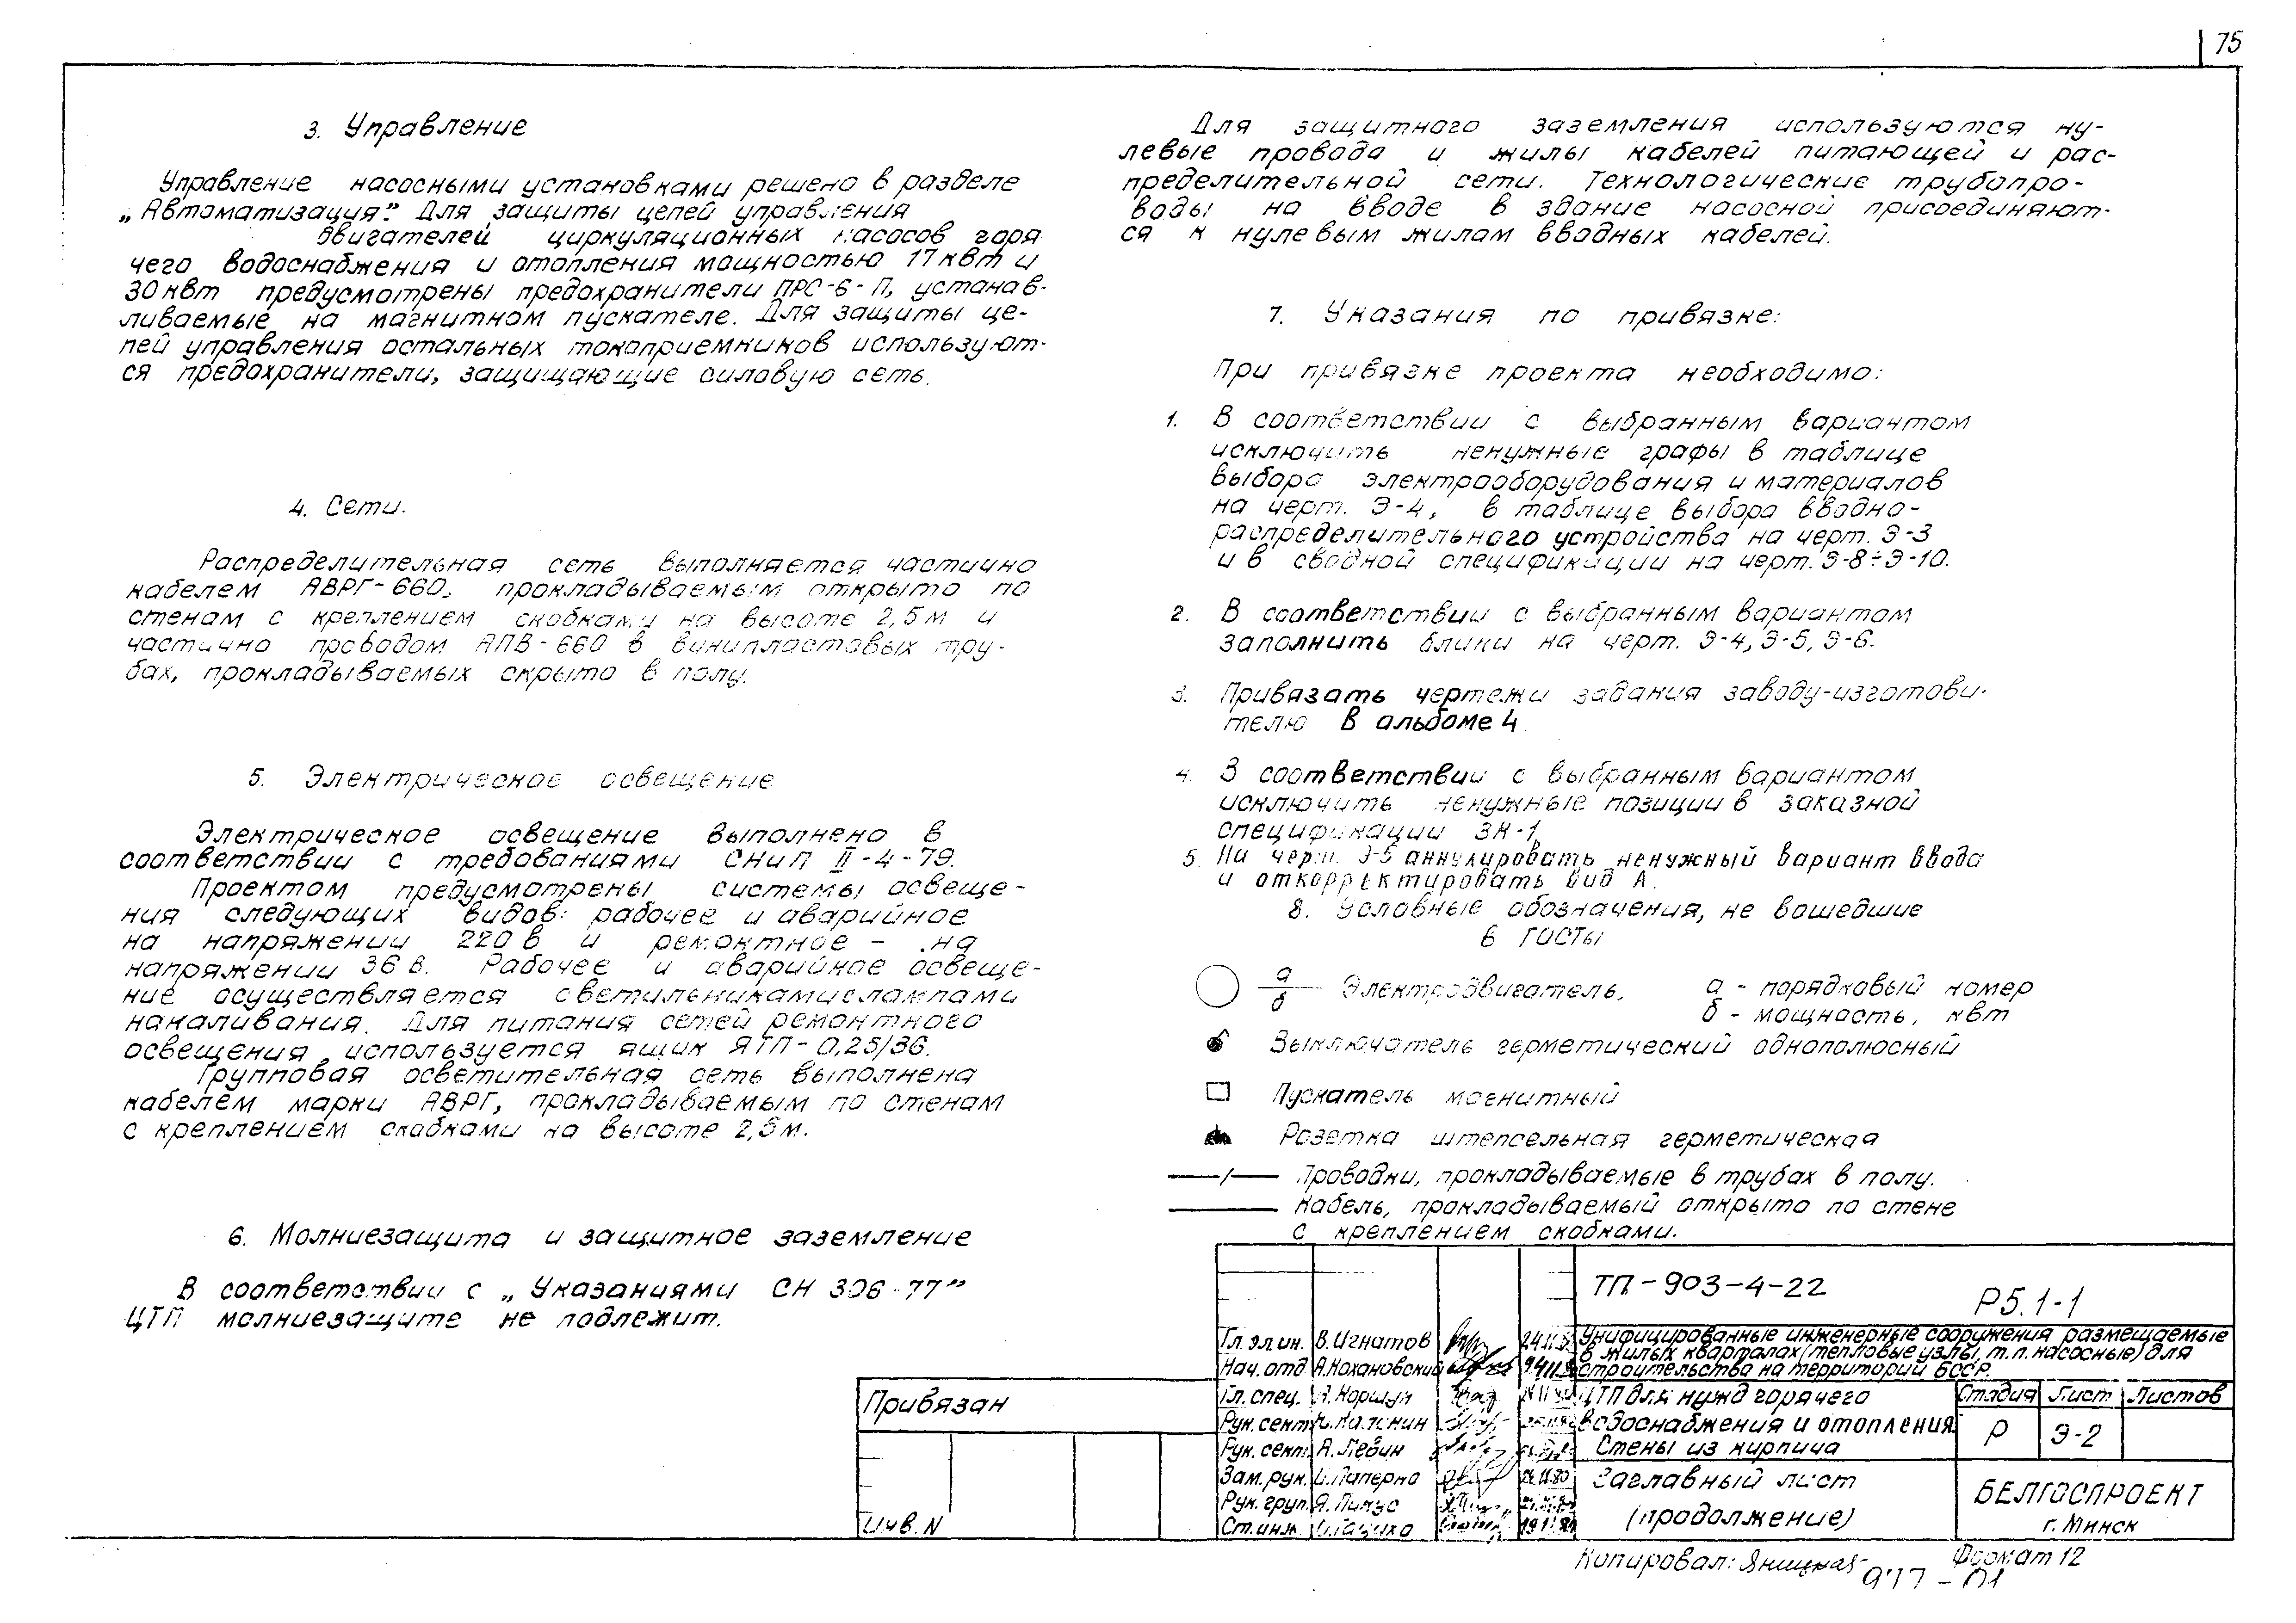 75
3. Управление
Управление насосными установками решено в разделе
„Автоматизация." Для защиты цепей управления
двигателей циркуляционных насосов горя
чего водоснабжения и отопления мощностью 17квт и
30квт предусмотрены предохранители ПРС-6-П, устанав-
ливаемые на магнитном пускателе. Для защиты це-
пей управления остальных токоприемников используют-
ся предохранители, защищающие силовую сеть.
4. Сети.
Распределительная сеть выполняется частично
кабелем АВРГ-660, прокладываемым открыто по
стенам с креплением скобками на высоте 2,5м и
частично проводом АПВ-660 в винипластовых тру-
бах, прокладываемых скрыто в полу.
5. Электрическое освещение
Электрическое освещение выполнено в
соответствии с требованиями СНиП II-4-79.
Проектом предусмотрены системы освеще-
ния следующих видов: рабочее и аварийное
на напряжении 220в и ремонтное - на
напряжении 36в. Рабочее и аварийное освеще-
ние осуществляется светильниками с лампами
накаливания. Для питания сетей ремонтного
освещения используется ящик ЯТП-0,25/36.
Групповая осветительная сеть выполнена
кабелем марки АВРГ, прокладываемым по стенам
с креплением скобками на высоте 2,5м.
6. Молниезащита и защитное заземление
В соответствии с „Указаниями СН 306-77"
ЦТП молниезащите не подлежит.
Для защитного заземления используются ну-
левые провода и жилы кабелей питающей и рас-
пределительной сети. Технологические трубопро-
воды на вводе в здание насосной присоединяют-
ся к нулевым жилам вводных кабелей.
7. Указания по привязке:
При привязке проекта необходимо:
1. В соответствии с выбранным вариантом
исключить ненужные графы в таблице
выбора электрооборудования и материалов
на черт. Э-4, в таблице выбора вводно-
распределительного устройства на черт. Э-3
и в сводной спецификации на черт. Э-8÷Э-10.
2. В соответствии с выбранным вариантом
заполнить бланки на черт. Э-4, Э-5, Э-6.
3. Привязать чертежи задания заводу-изготови-
телю в альбоме 4.
4. В соответствии с выбранным вариантом
исключить ненужные позиции в заказной
спецификации ЗК-1.
5. На черт. Э-5 аннулировать ненужный вариант ввода
и откорректировать вид А.
8. Условные обозначения, не вошедшие
в ГОСТы
а/б Электродвигатель, а - порядковый номер
б - мощность, квт
Выключатель герметический однополюсный
Пускатель магнитный
Розетка штепсельная герметическая
Проводки, прокладываемые в трубах в полу.
Кабель, прокладываемый открыто по стене
с креплением скобками.
ТП-903-4-22
Р5.1-1
Унифицированные инженерные сооружения размещаемые
в жилых кварталах (тепловые узлы, т.п. насосные) для
строительства на территории БССР.
Гл.эл.ин. В.Игнатов
Нач.отд А.Кохановский
Гл.спец. Коршун
Рук.сект Калинин
Рук.сект. А.Левин
Зам.рук. Паперно
Рук.груп. Я.Пинус
Ст.инж.
ЦТП для нужд горячего
водоснабжения и отопления
Стены из кирпича
Стадия Лист Листов
Р Э-2
Заглавный лист
(продолжение)
БЕЛГОСПРОЕКТ
г. Минск
Привязан
Инв.N
Копировал: Яницкая
Формат 12